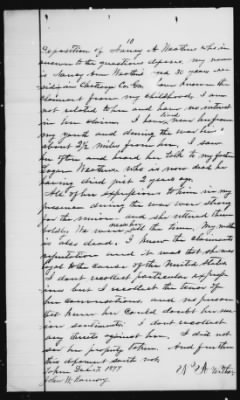 10
Deposition of Nancy A Weathers who in
answer to the questions deposes, my name
is Nancy Ann Weathers age 30 years
Co. Ga. I have known the
claimant from my childhood, I am
not related to her and have no interest
in her claim. I have lived near her from
my youth and during the war her
about 2½ miles from her. I saw
her often and heard her talk to my father
Weathers who is now dead he
having died just 2 years ago.
All of her expressions to him in my
presence during the war were strong
for the union. and she uttered them
boldly. We were neighbors all the time, My mother
is also dead. I knew the claimants
reputation and it was that she was
loyal to the cause of the United States
I dont recollect particular expressions
but I recollect the tenor of
her conversations and no person
that knew her could doubt her union
sentiments. I dont recollect
any threats against her. I did not
see her property taken. And further
this deponent saith not.
Dec 13 1877
John W Ramsey
N A Weathers